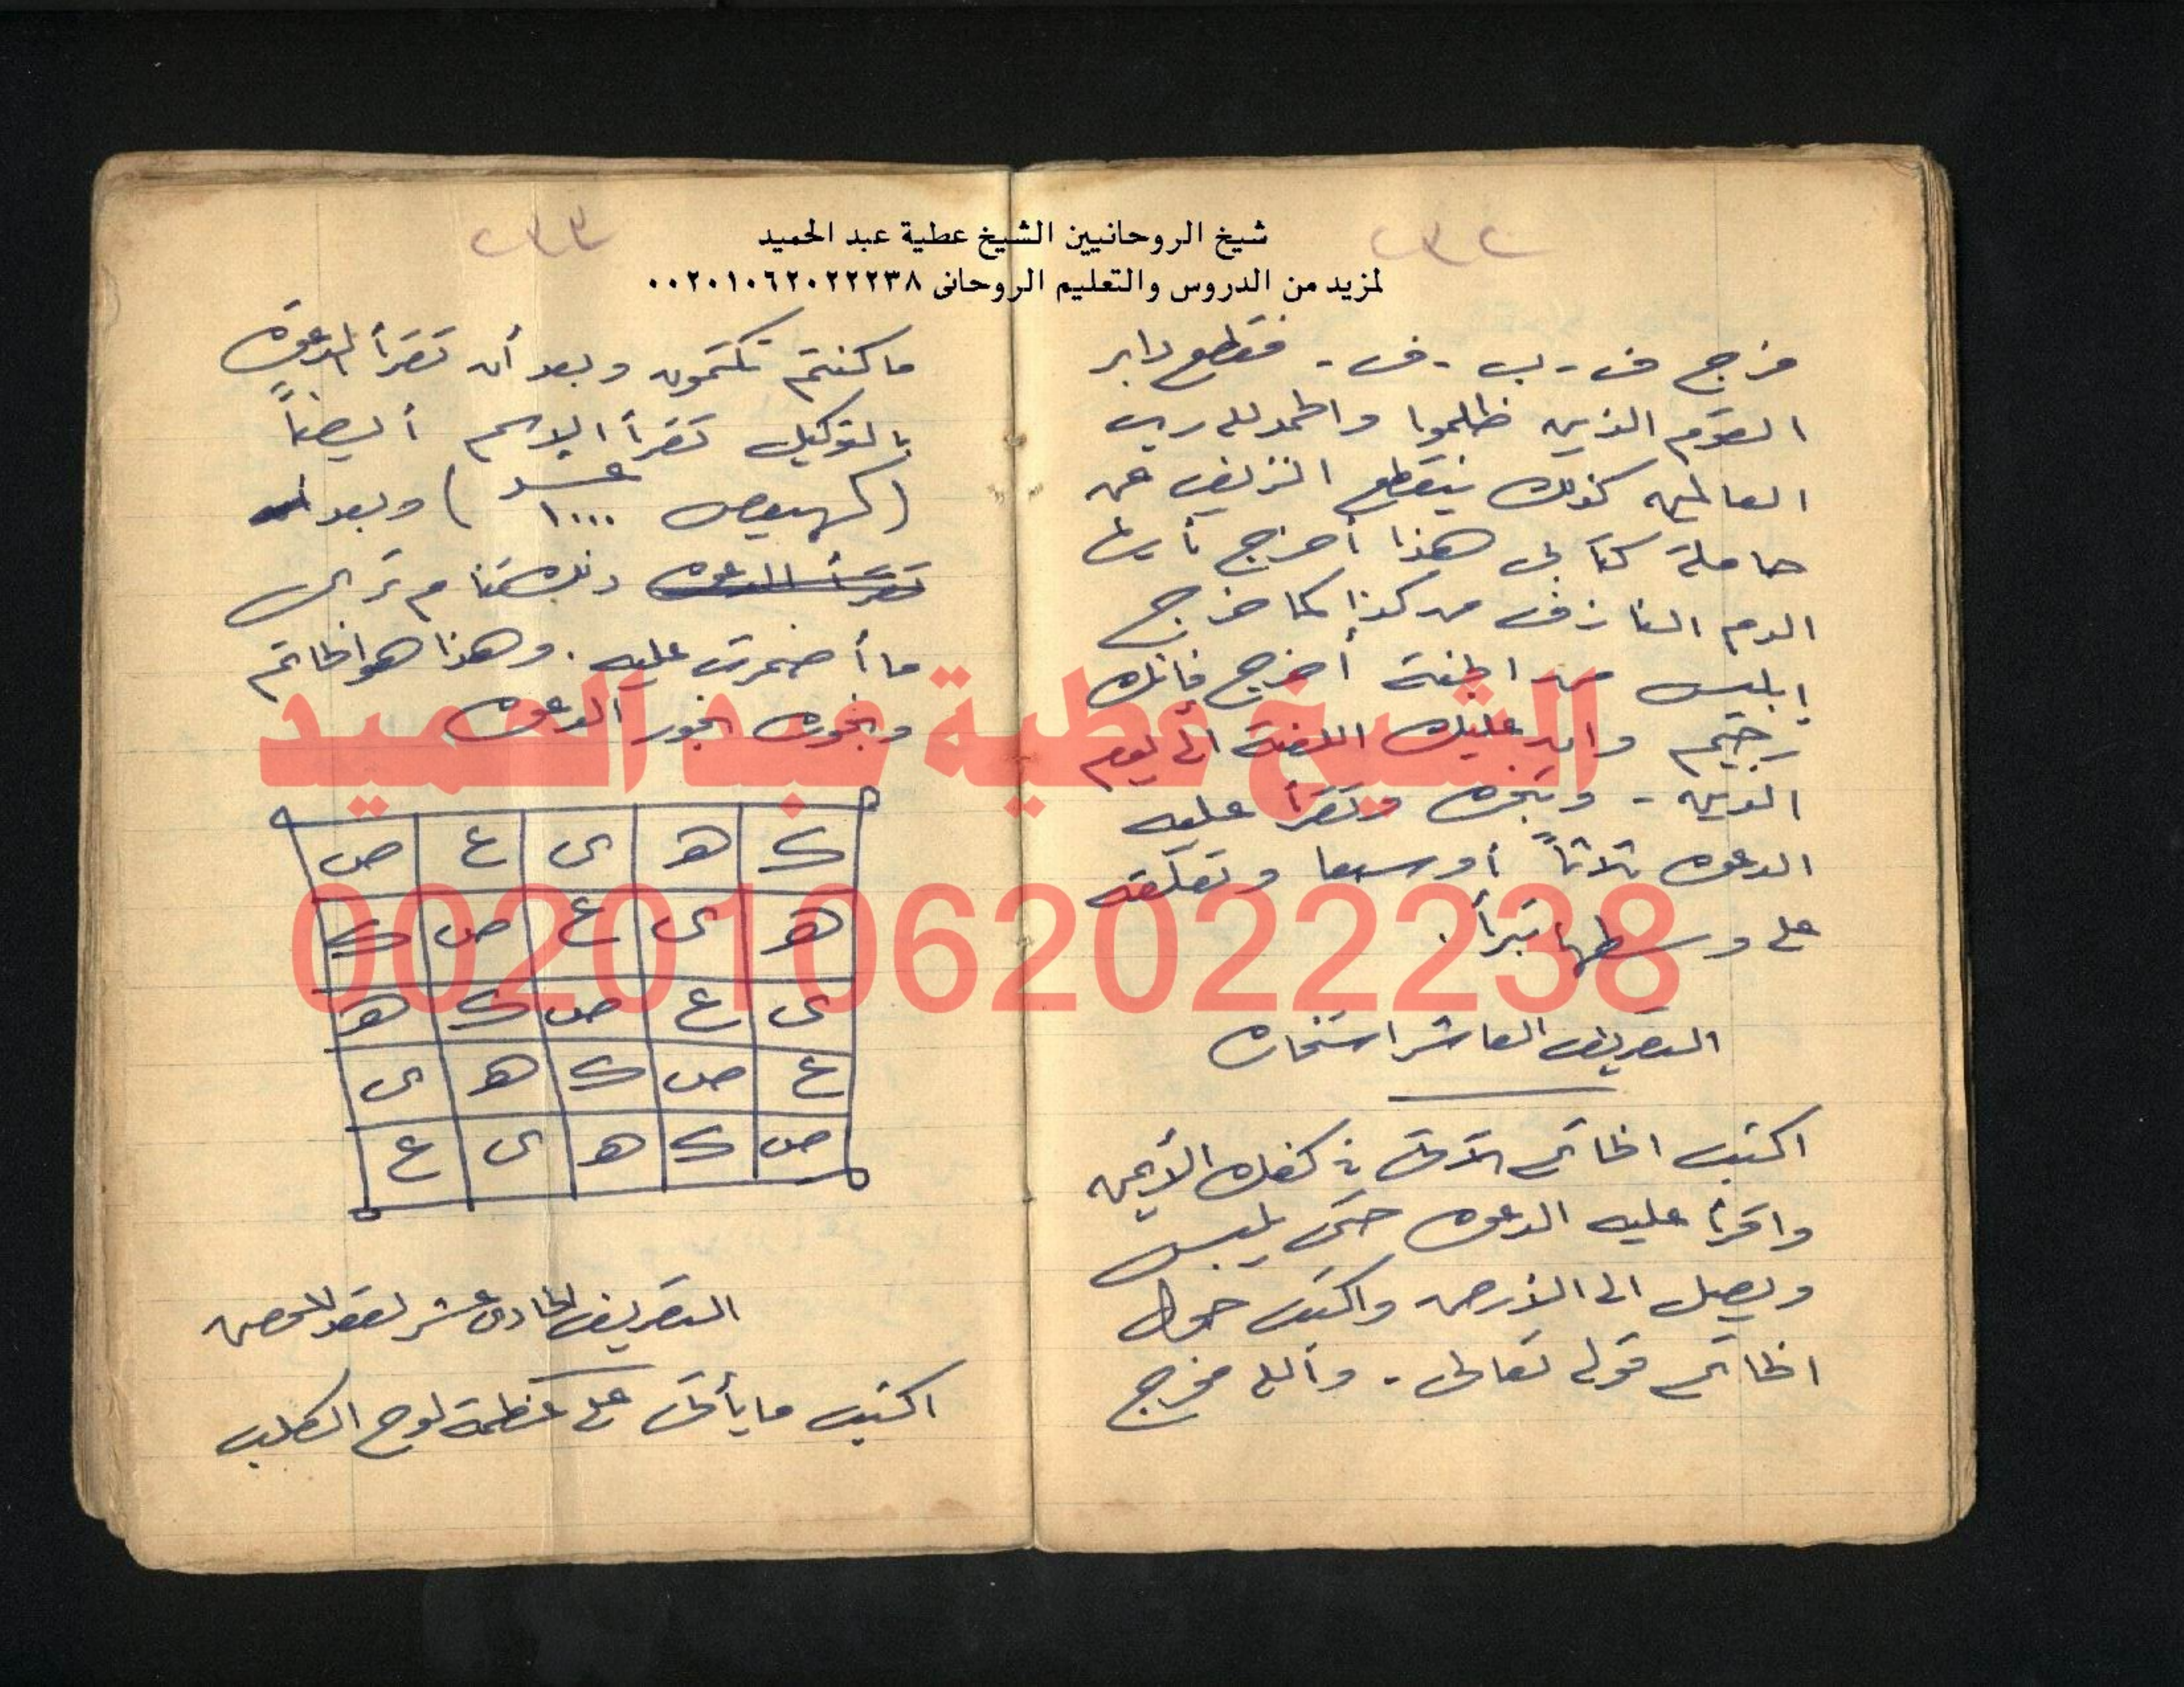 شيخ الروحانيين الشيخ عطية عبد الحميد
لمزيد من الدروس والتعليم الروحانى ٠٠٢٠١٠٦٢٠٢٢٢٣٨
٢٣٢
فرج ف - ب - ف - فقطع دابر
القوم الذين ظلموا والحمد لله رب
العالمين كذلك ينقطع النزيف عن
حاملة كتابى هذا أخرج أيها
الدم النازف من كذا كما خرج
إبليس من الجنة أخرج فإنك
رجيم وان عليك اللعنة الى يوم
الدين - وتبخره وتقرأ عليه
الدعوه ثلاثاً أو سبعا وتعلقه
على وسطها تبرأ .
التصريف العاشر استخاره
اكتب الخاتم الآتى فى كفك الأيمن
واقرأ عليه الدعوه حتى
ويصل الى الأرض واكتب حول
الخاتم قوله تعالى - والله مخرج
٢٣٣
ما كنتم تكتمون وبعد أن تقرأ الدعوة
بالتوكيل تقرأ الإسم أيضاً
(كهيعص عدد ١٠٠٠) وبعد
تقرأ الدعوه ذلك تنام ترى
ما أضمرت عليه . وهذا هو الخاتم
وبخوره بخور الدعوه
ك ه ى ع ص
ه ى ع ص ك
ى ع ص ك ه
ع ص ك ه ى
ص ك ه ى ع
التصريف الحادى عشر لعقد
اكتب ما يأتى على عظمة لوح الكلب
الشيخ عطية عبد الحميد
00201062022238